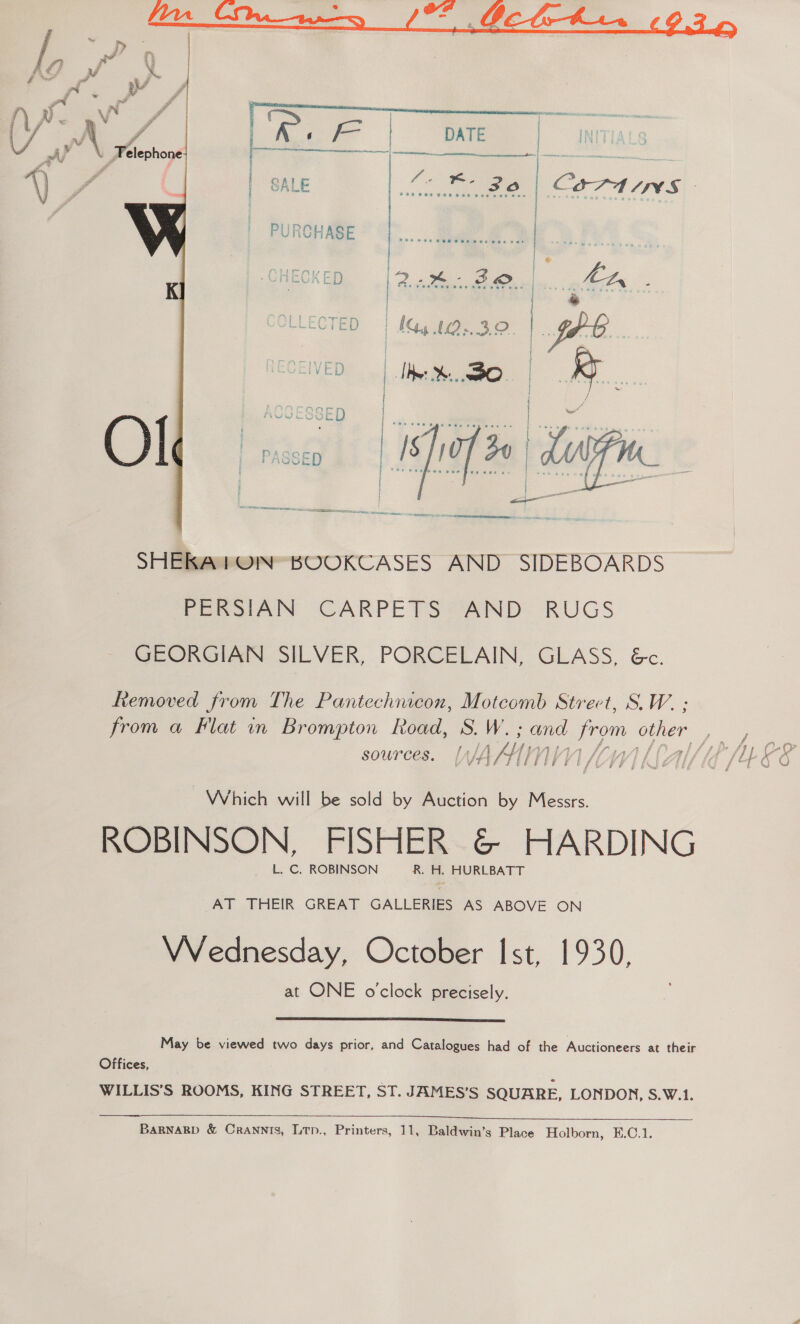 Mr Comins 1st October 1930
Telephone
R. F DATE INITIALS
SALE 1. X. 30 Comins
PURCHASE
CHECKED 2. X. 30
COLLECTED 30
RECEIVED X. 30
ACCESSED
PASSED 15/10/30
W
K
Ol
SHERATON BOOKCASES AND SIDEBOARDS
PERSIAN CARPETS AND RUGS
GEORGIAN SILVER, PORCELAIN, GLASS, &c.
Removed from The Pantechnicon, Motcomb Street, S.W.;
from a Flat in Brompton Road, S.W.; and from other
sources.
Which will be sold by Auction by Messrs.
ROBINSON, FISHER & HARDING
L. C. ROBINSON R. H. HURLBATT
AT THEIR GREAT GALLERIES AS ABOVE ON
Wednesday, October 1st, 1930,
at ONE o'clock precisely.
May be viewed two days prior, and Catalogues had of the Auctioneers at their
Offices,
WILLIS'S ROOMS, KING STREET, ST. JAMES'S SQUARE, LONDON, S.W.1.
BARNARD & CRANNIS, LTD., Printers, 11, Baldwin's Place Holborn, E.C.1.